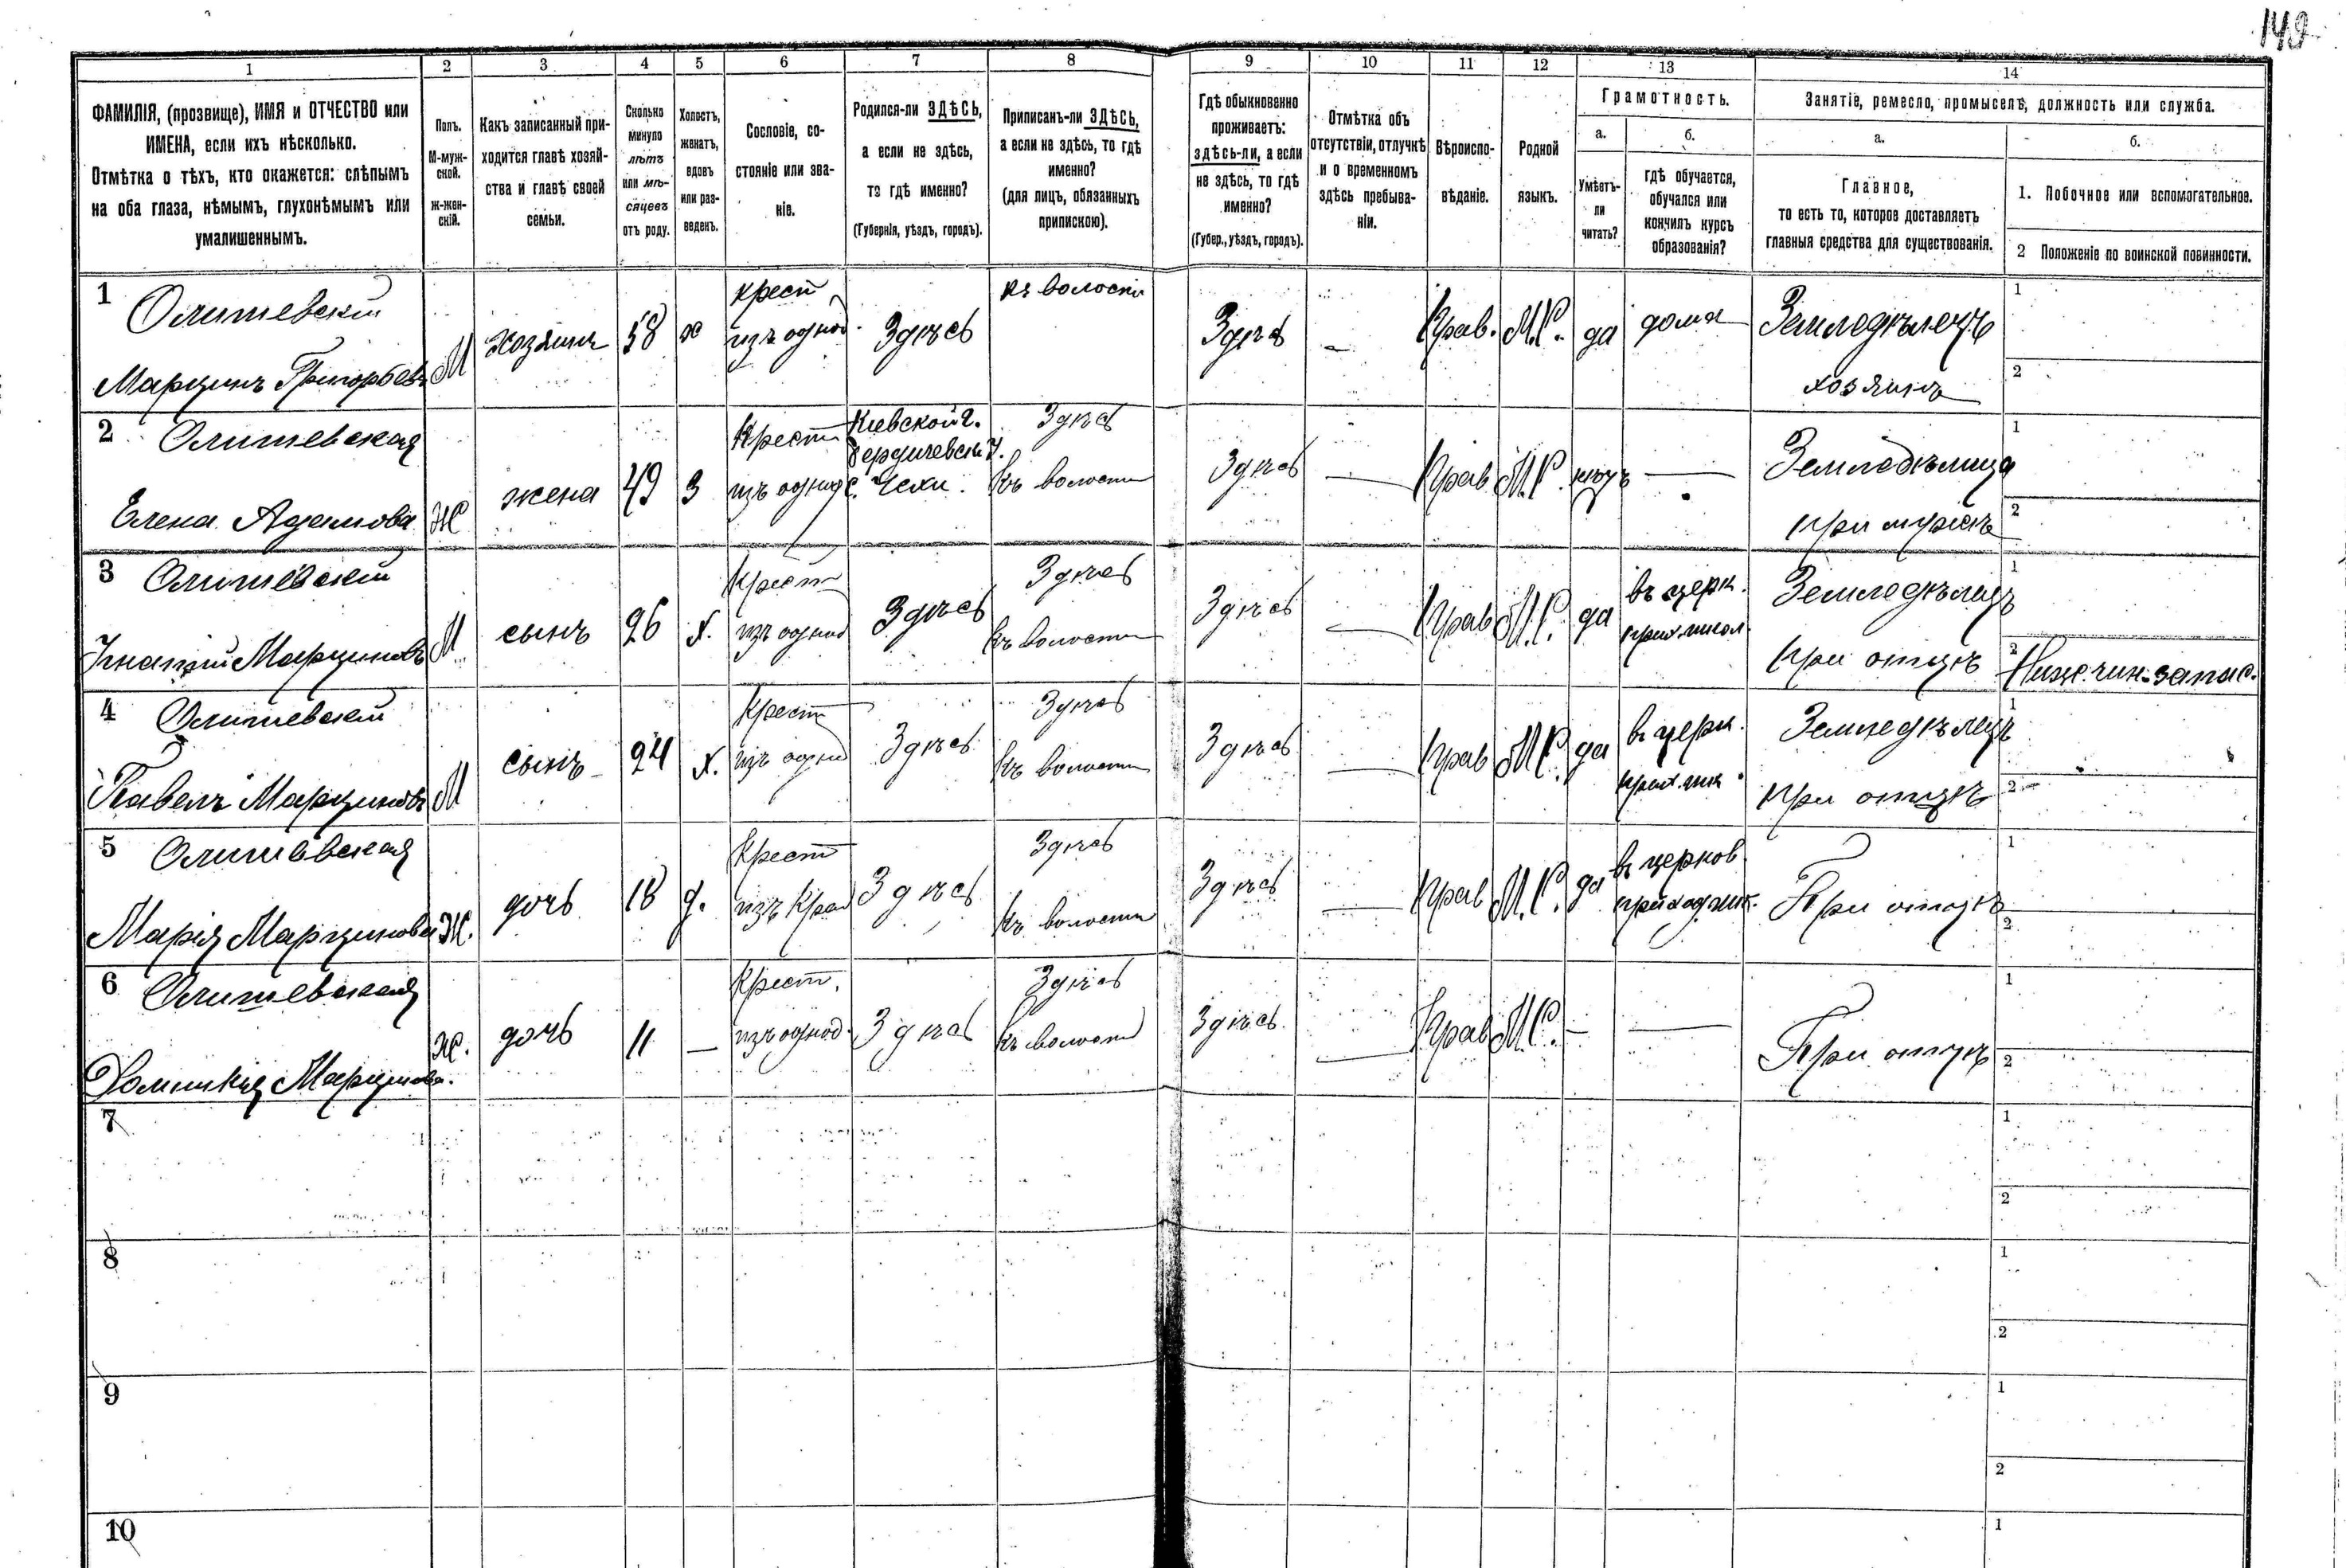 149
1
2
3
4
5
6
7
8
9
10
11
12
13
14
ФАМИЛІЯ, (прозвище), ИМЯ и ОТЧЕСТВО или
ИМЕНА, если ихъ нѣсколько.
Отмѣтка о тѣхъ, кто окажется: слѣпымъ
на оба глаза, нѣмымъ, глухонѣмымъ или
умалишеннымъ.
Полъ.
М-муж-
ской.
ж-жен-
скій.
Какъ записанный при-
ходится главѣ хозяй-
ства и главѣ своей
семьи.
Сколько
минуло
лѣтъ
или мѣ-
сяцевъ
отъ роду.
Холостъ,
женатъ,
вдовъ
или раз-
веденъ.
Сословіе, со-
стояніе или зва-
ніе.
Родился-ли ЗДѢСЬ,
а если не здѣсь,
то гдѣ именно?
(Губернія, уѣздъ, городъ).
Приписанъ-ли ЗДѢСЬ,
а если не здѣсь, то гдѣ
именно?
(для лицъ, обязанныхъ
припискою).
Гдѣ обыкновенно
проживаетъ:
здѣсь-ли, а если
не здѣсь, то гдѣ
именно?
(Губер., уѣздъ, городъ).
Отмѣтка объ
отсутствіи, отлучкѣ
и о временномъ
здѣсь пребыва-
ніи.
Вѣроиспо-
вѣданіе.
Родной
языкъ.
Грамотность.
а.
Умѣетъ-
ли
читать?
б.
гдѣ обучается,
обучался или
кончилъ курсъ
образованія?
Занятіе, ремесло, промыселъ, должность или служба.
а.
Главное,
то есть то, которое доставляетъ
главныя средства для существованія.
б.
1. Побочное или вспомогательное.
2 Положеніе по воинской повинности.
1
Олишевскій
Марцинъ Григорьевъ
М
хозяинъ
58
ж
крест
изъ однод.
Здѣсь
къ волости
Здѣсь
—
Прав.
М.Р.
да
дома
Земледѣлецъ
хозяинъ
1
2
2
Олишевская
Елена Адамова
Ж
жена
49
З
Крест
изъ однод
Кіевской г.
Бердичевск. у.
с. Чехи.
Здѣсь
къ волости
Здѣсь
—
Прав
М.Р.
нѣтъ
—
Земледѣлица
при мужѣ
1
2
3
Олишевскій
Игнатій Марциновъ
М
сынъ
26
х.
Крест
изъ однод
Здѣсь
Здѣсь
къ волости
Здѣсь
—
Прав
М.Р.
да
въ церк.
прих. школ.
Земледѣлецъ
при отцѣ
1
2
Ниж. чин. запас.
4
Олишевскій
Павелъ Марциновъ
М
сынъ
24
х.
Крест
изъ однод
Здѣсь
Здѣсь
къ волости
Здѣсь
—
Прав
М.Р.
да
въ церк.
прих. шк.
Земледѣлецъ
при отцѣ
1
2
5
Олишевская
Марія Марцинова
Ж.
дочь
18
д.
Крест
изъ
Здѣсь
Здѣсь
къ волости
Здѣсь
—
Прав
М.Р.
да
въ церков.
приход. шк.
При отцѣ
1
2
6
Олишевская
Домникія Марцинова.
Ж.
дочь
11
—
Крест.
изъ однод.
Здѣсь
Здѣсь
къ волости
Здѣсь
—
Прав
М.Р.
—
—
При отцѣ
1
2
7
1
2
8
1
2
9
1
2
10
1